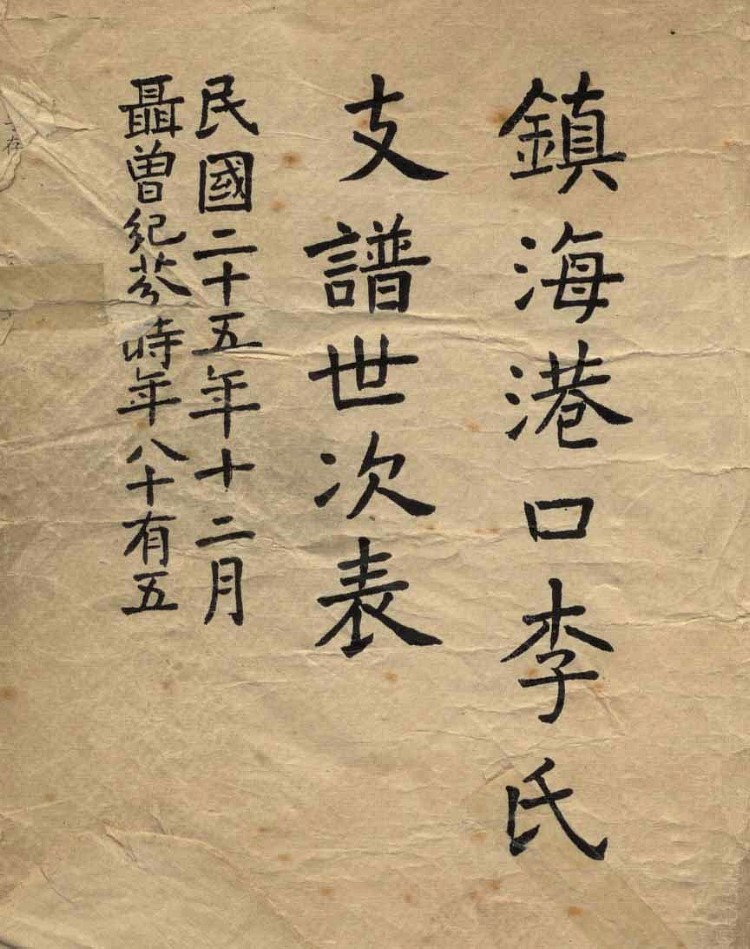 鎮海港口李氏
支譜世次表
民國二十五年十二月
聶曾紀芬時年八十有五